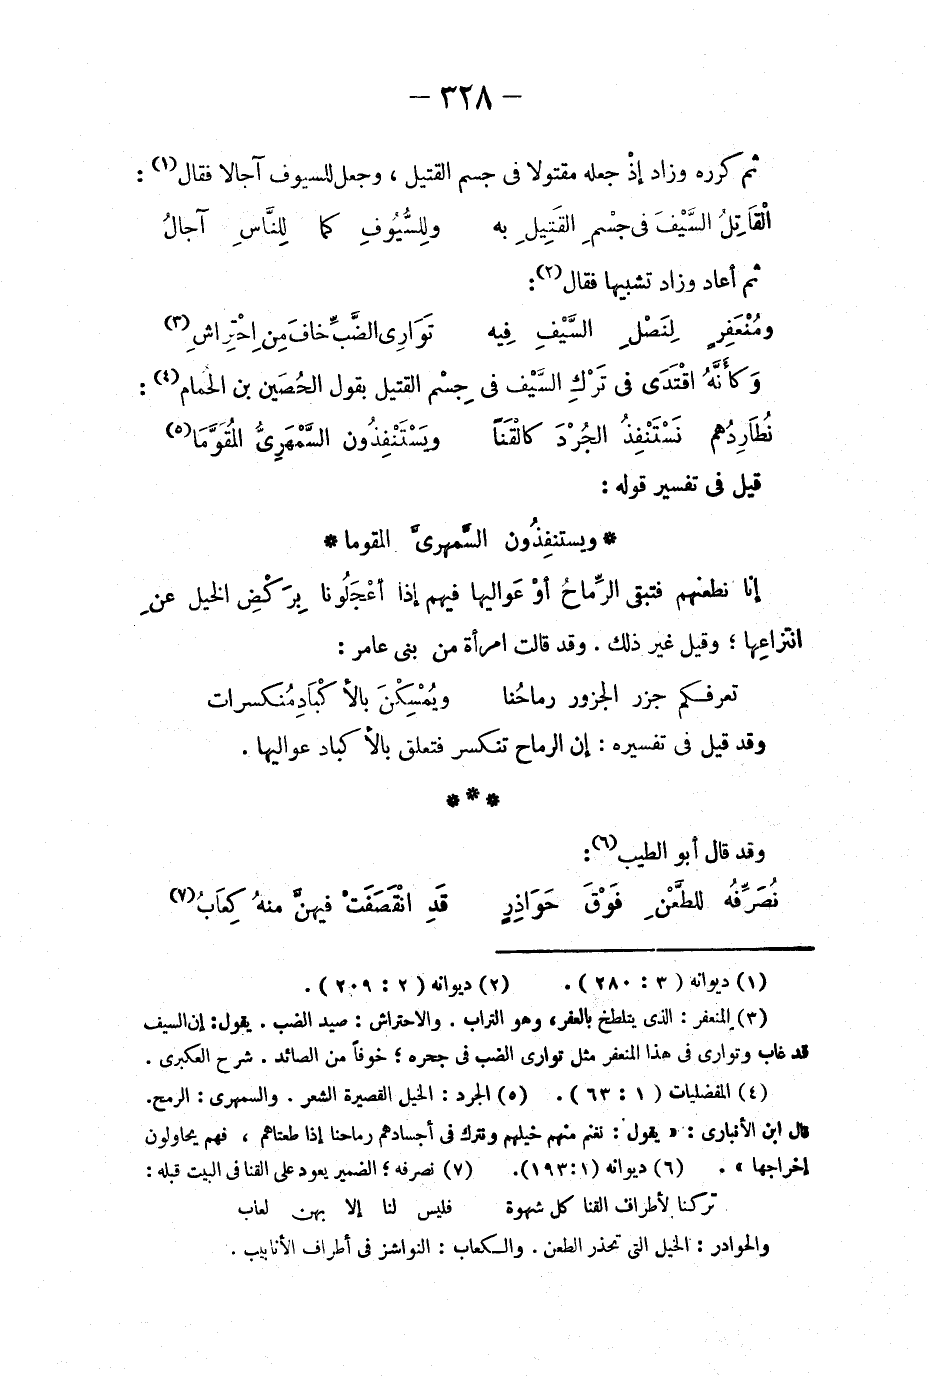 – ٣٢٨ –
ثم كرره وزاد إذْ جعله مقتولا فى جسم القتيل ، وجعل للسيوف آجالا فقال(١) :
الْقَاتِلُ السَّيْفَ فى جسْمِ القَتِيلِ به وللسُّيُوفِ كما لِلنَّاسِ آجالُ
ثم أعاد وزاد تشبيها فقال(٢):
ومُنْعَفِرٍ لِنَصْلِ السَّيْفِ فِيه تَوَارِى الضَّبِّ خافَ مِنِ احْتِراشِ(٣)
وَكأَنَّهُ اقْتَدَى فى تَرْكِ السَّيْف فى جِسْم القتيل بقول الحُصَين بن الحُمام(٤) :
نُطَارِدُهم نَسْتَنْفِذُ الجُرْدَ كالْقَنَاَ ويَسْتَنْفِذُون السَّمْهَرِىَّ المُقَوَّمَا(٥)
قيل فى تفسير قوله :
* ويستنفِذُون السَّمهرىَّ المقوما *
إنا نطعنهم فتبقى الرِّماحُ أوْ عَواليها فيهم إذا أعْجَلُونا بِرَكْضِ الخيل عن
انتزاعِها ؛ وقيل غير ذلك . وقد قالت امرأة من بنى عامر :
تعرفكم جزر الجزور رماحُنا ويُمْسِكْنَ بالأكْبَادِ مُنكسرات
وقد قيل فى تفسيره : إن الرماح تنكسر فتعلق بالأكباد عواليها .
* * *
وقد قال أبو الطيب(٦):
نُصَرِّفُه للطَّعْنِ فَوْقَ حَوَاذِرٍ قَدِ انْقَصَفَتْ فيهنَّ منهُ كِعَابُ(٧)
(١) ديوانه ( ٣ : ٢٨٠ ) . (٢) ديوانه ( ٢ : ٢٠٩ ) .
(٣) المنعفر : الذى يتلطخ بالعفر، وهو التراب . والاحتراش : صيد الضب . يقول: إن السيف
قد غاب وتوارى فى هذا المنعفر مثل توارى الضب فى جحره ؛ خوفاً من الصائد . شرح العكبرى .
(٤) المفضليات ( ١ : ٦٣ ) . (٥) الجرد : الخيل القصيرة الشعر . والسمهرى : الرمح.
قال ابن الأنبارى : « يقول : نغنم منهم خيلهم ونترك فى أجسادهم رماحنا إذا طعناهم ، فهم يحاولون
إخراجها » . (٦) ديوانه (١ :١٩٣). (٧) نصرفه ؛ الضمير يعود على القنا فى البيت قبله :
تركنا لأطراف القنا كل شهوة فليس لنا إلا بهن لعاب
والحوادر : الخيل التى تحذر الطعن . والكعاب : النواشز فى أطراف الأنابيب .